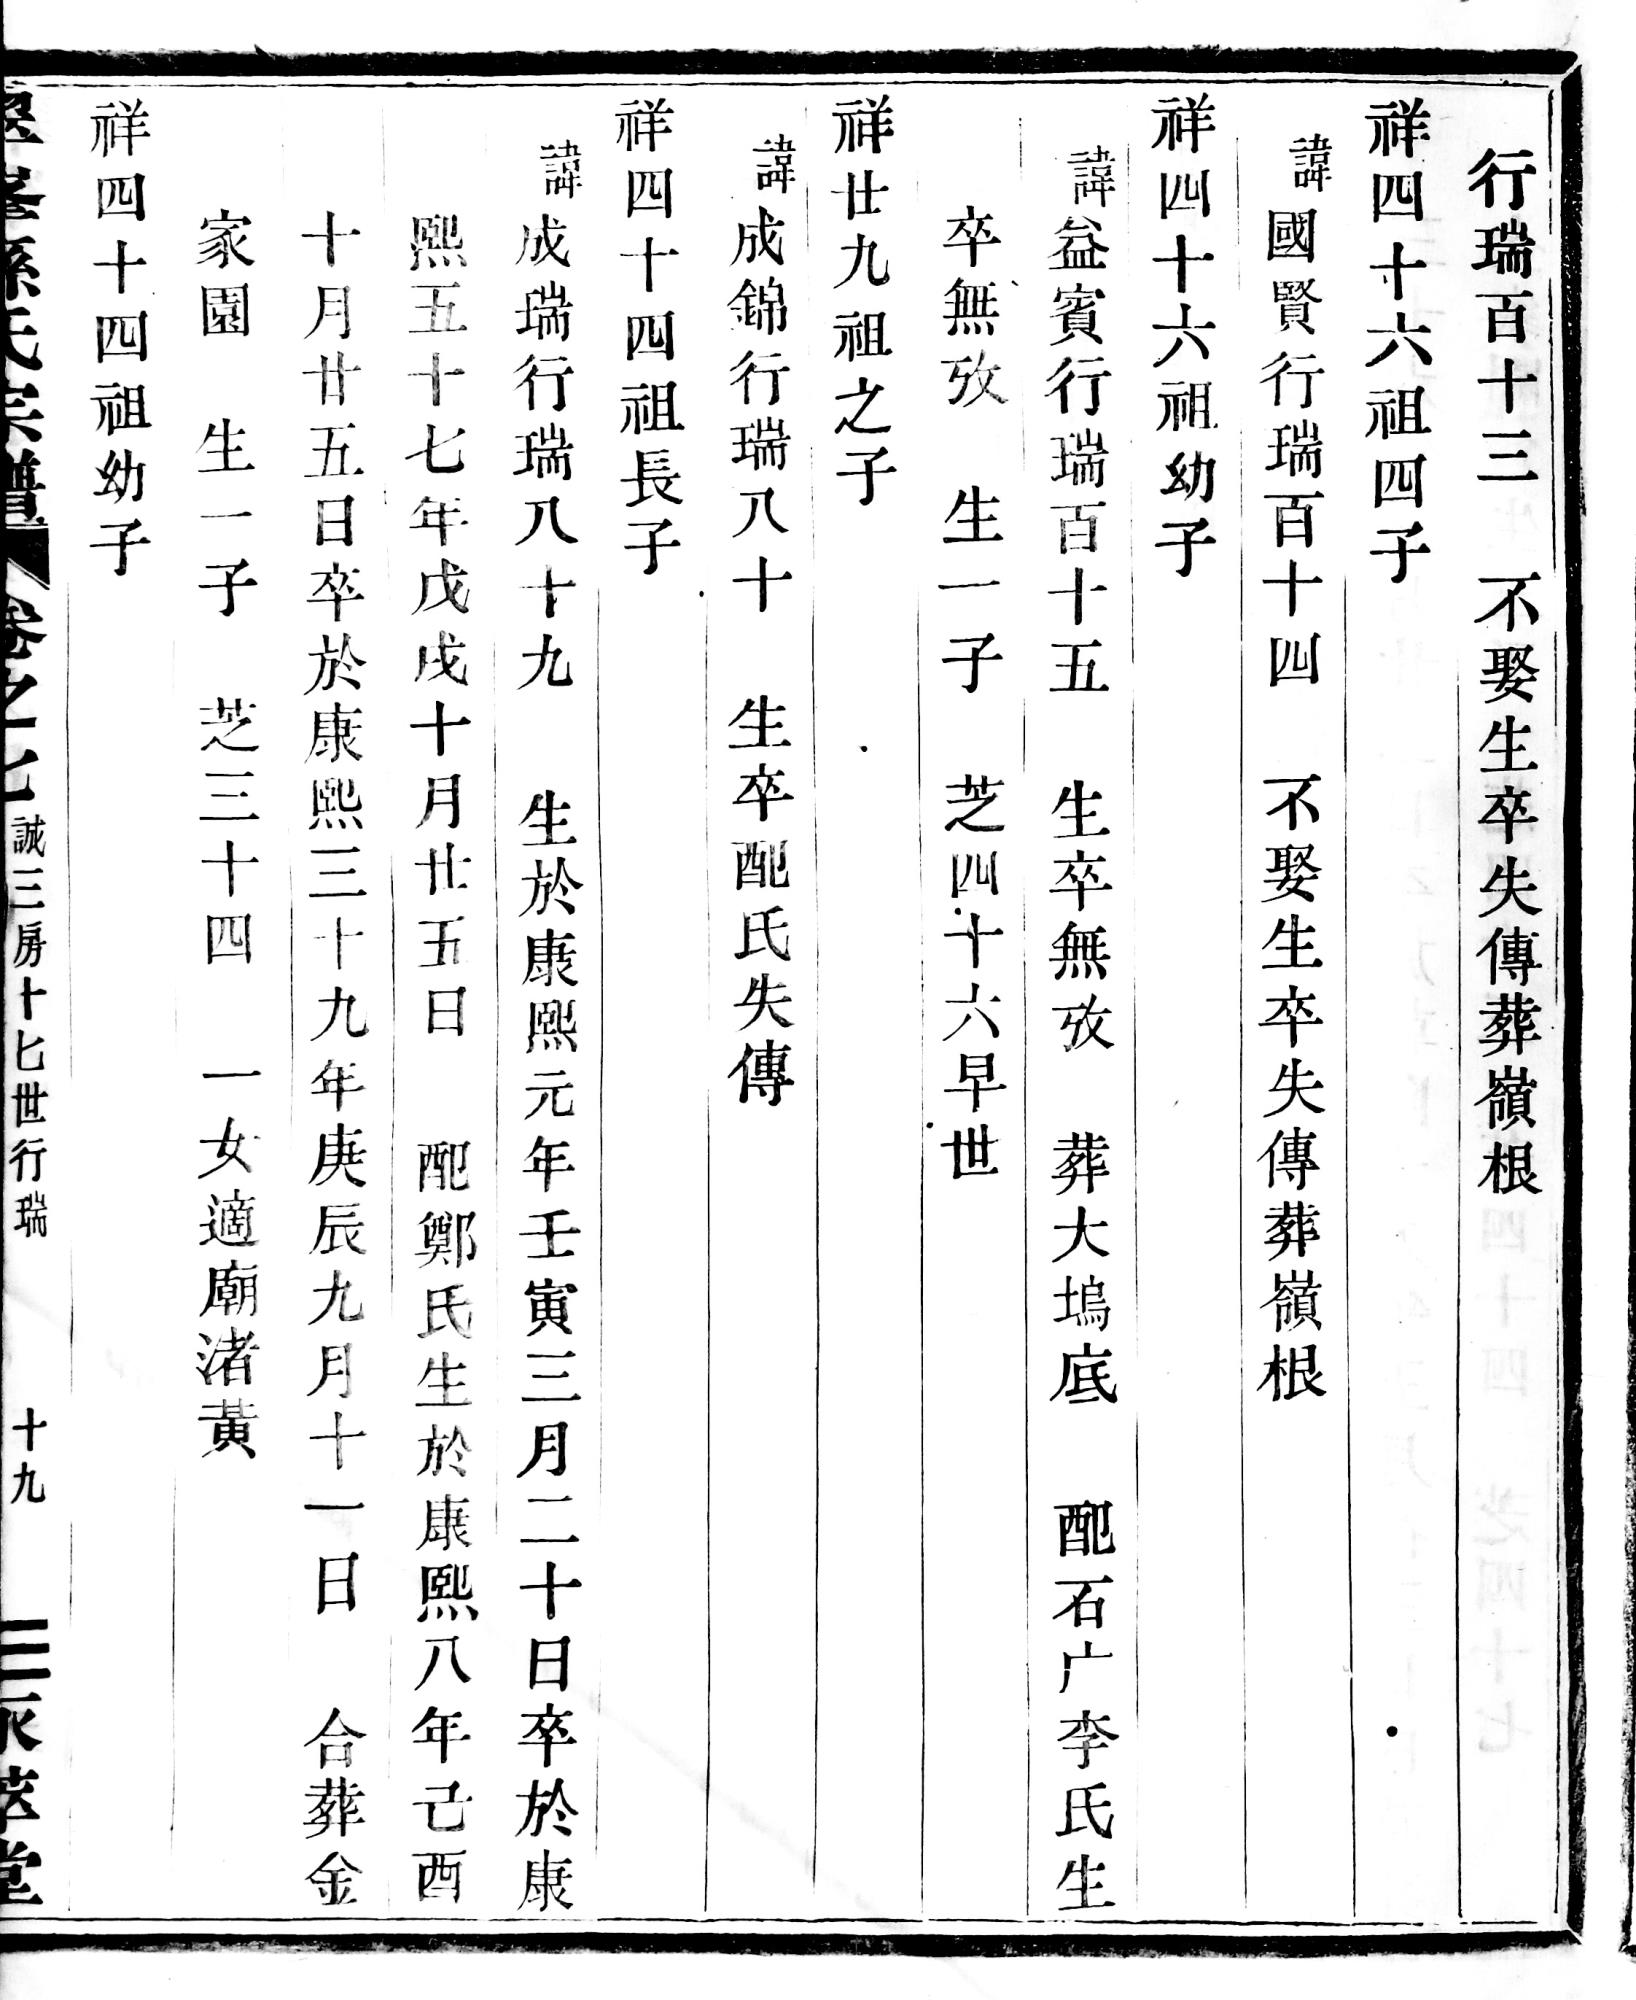 行瑞百十三　不娶生卒失傳葬嶺根
祥四十六祖四子
諱國賢行瑞百十四　不娶生卒失傳葬嶺根
祥四十六祖幼子
諱益賓行瑞百十五　生卒無攷　葬大塢底　配石广李氏生
卒無攷　生一子　芝四十六早世
祥廿九祖之子
諱成錦行瑞八十　生卒配氏失傳
祥四十四祖長子
諱成瑞行瑞八十九　生於康熙元年壬寅三月二十日卒於康
熙五十七年戊戌十月廿五日　配鄭氏生於康熙八年己酉
十月廿五日卒於康熙三十九年庚辰九月十一日　合葬金
家園　生一子　芝三十四　一女適廟渚黃
祥四十四祖幼子
孫氏宗譜　卷之七　誠三房十七世行瑞　十九　萃堂